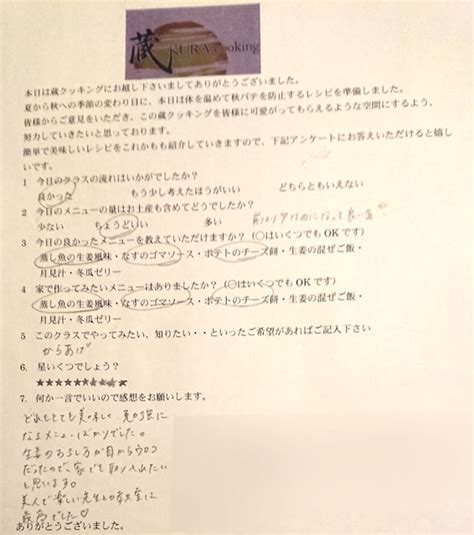 蔵
KURA cooking
本日は蔵クッキングにお越し下さいましてありがとうございました。
夏から秋への季節の変わり目に、本日は体を温めて秋バテを防止するレシピを準備しました。
皆様からご意見をいただき、この蔵クッキングを皆様に可愛がってもらえるような空間にするよう、
努力していきたいと思っております。
簡単で美味しいレシピをこれからも紹介していきますので、下記アンケートにお答えいただけると嬉し
いです。
1 今日のクラスの流れはいかがでしたか？
良かった もう少し考えたほうがいい どちらともいえない
2 今日のメニューの量はお土産も含めてどうでしたか？
少ない ちょうどいい 多い
3 今日の良かったメニューを教えていただけますか？（○はいくつでもOKです）
蒸し魚の生姜風味・なすのゴマソース・ポテトのチーズ餅・生姜の混ぜご飯・
月見汁・冬瓜ゼリー
4 家で作ってみたいメニューはありましたか？（○はいくつでもOKです）
蒸し魚の生姜風味・なすのゴマソース・ポテトのチーズ餅・生姜の混ぜご飯・
月見汁・冬瓜ゼリー
5 このクラスでやってみたい、知りたい・・といったご希望があればご記入下さい
からあげ
6. 星いくつでしょう？
★★★★★★★★★★
7. 何か一言でいいので感想をお願いします。
どれもとても美味しく、
なるメニューばかりでした。
生姜のおろし方が目からウロコ
だったので、家でも取り入れたい
と思います。
美人で楽しい先生とお教室に
最高でした♡
ありがとうございました。